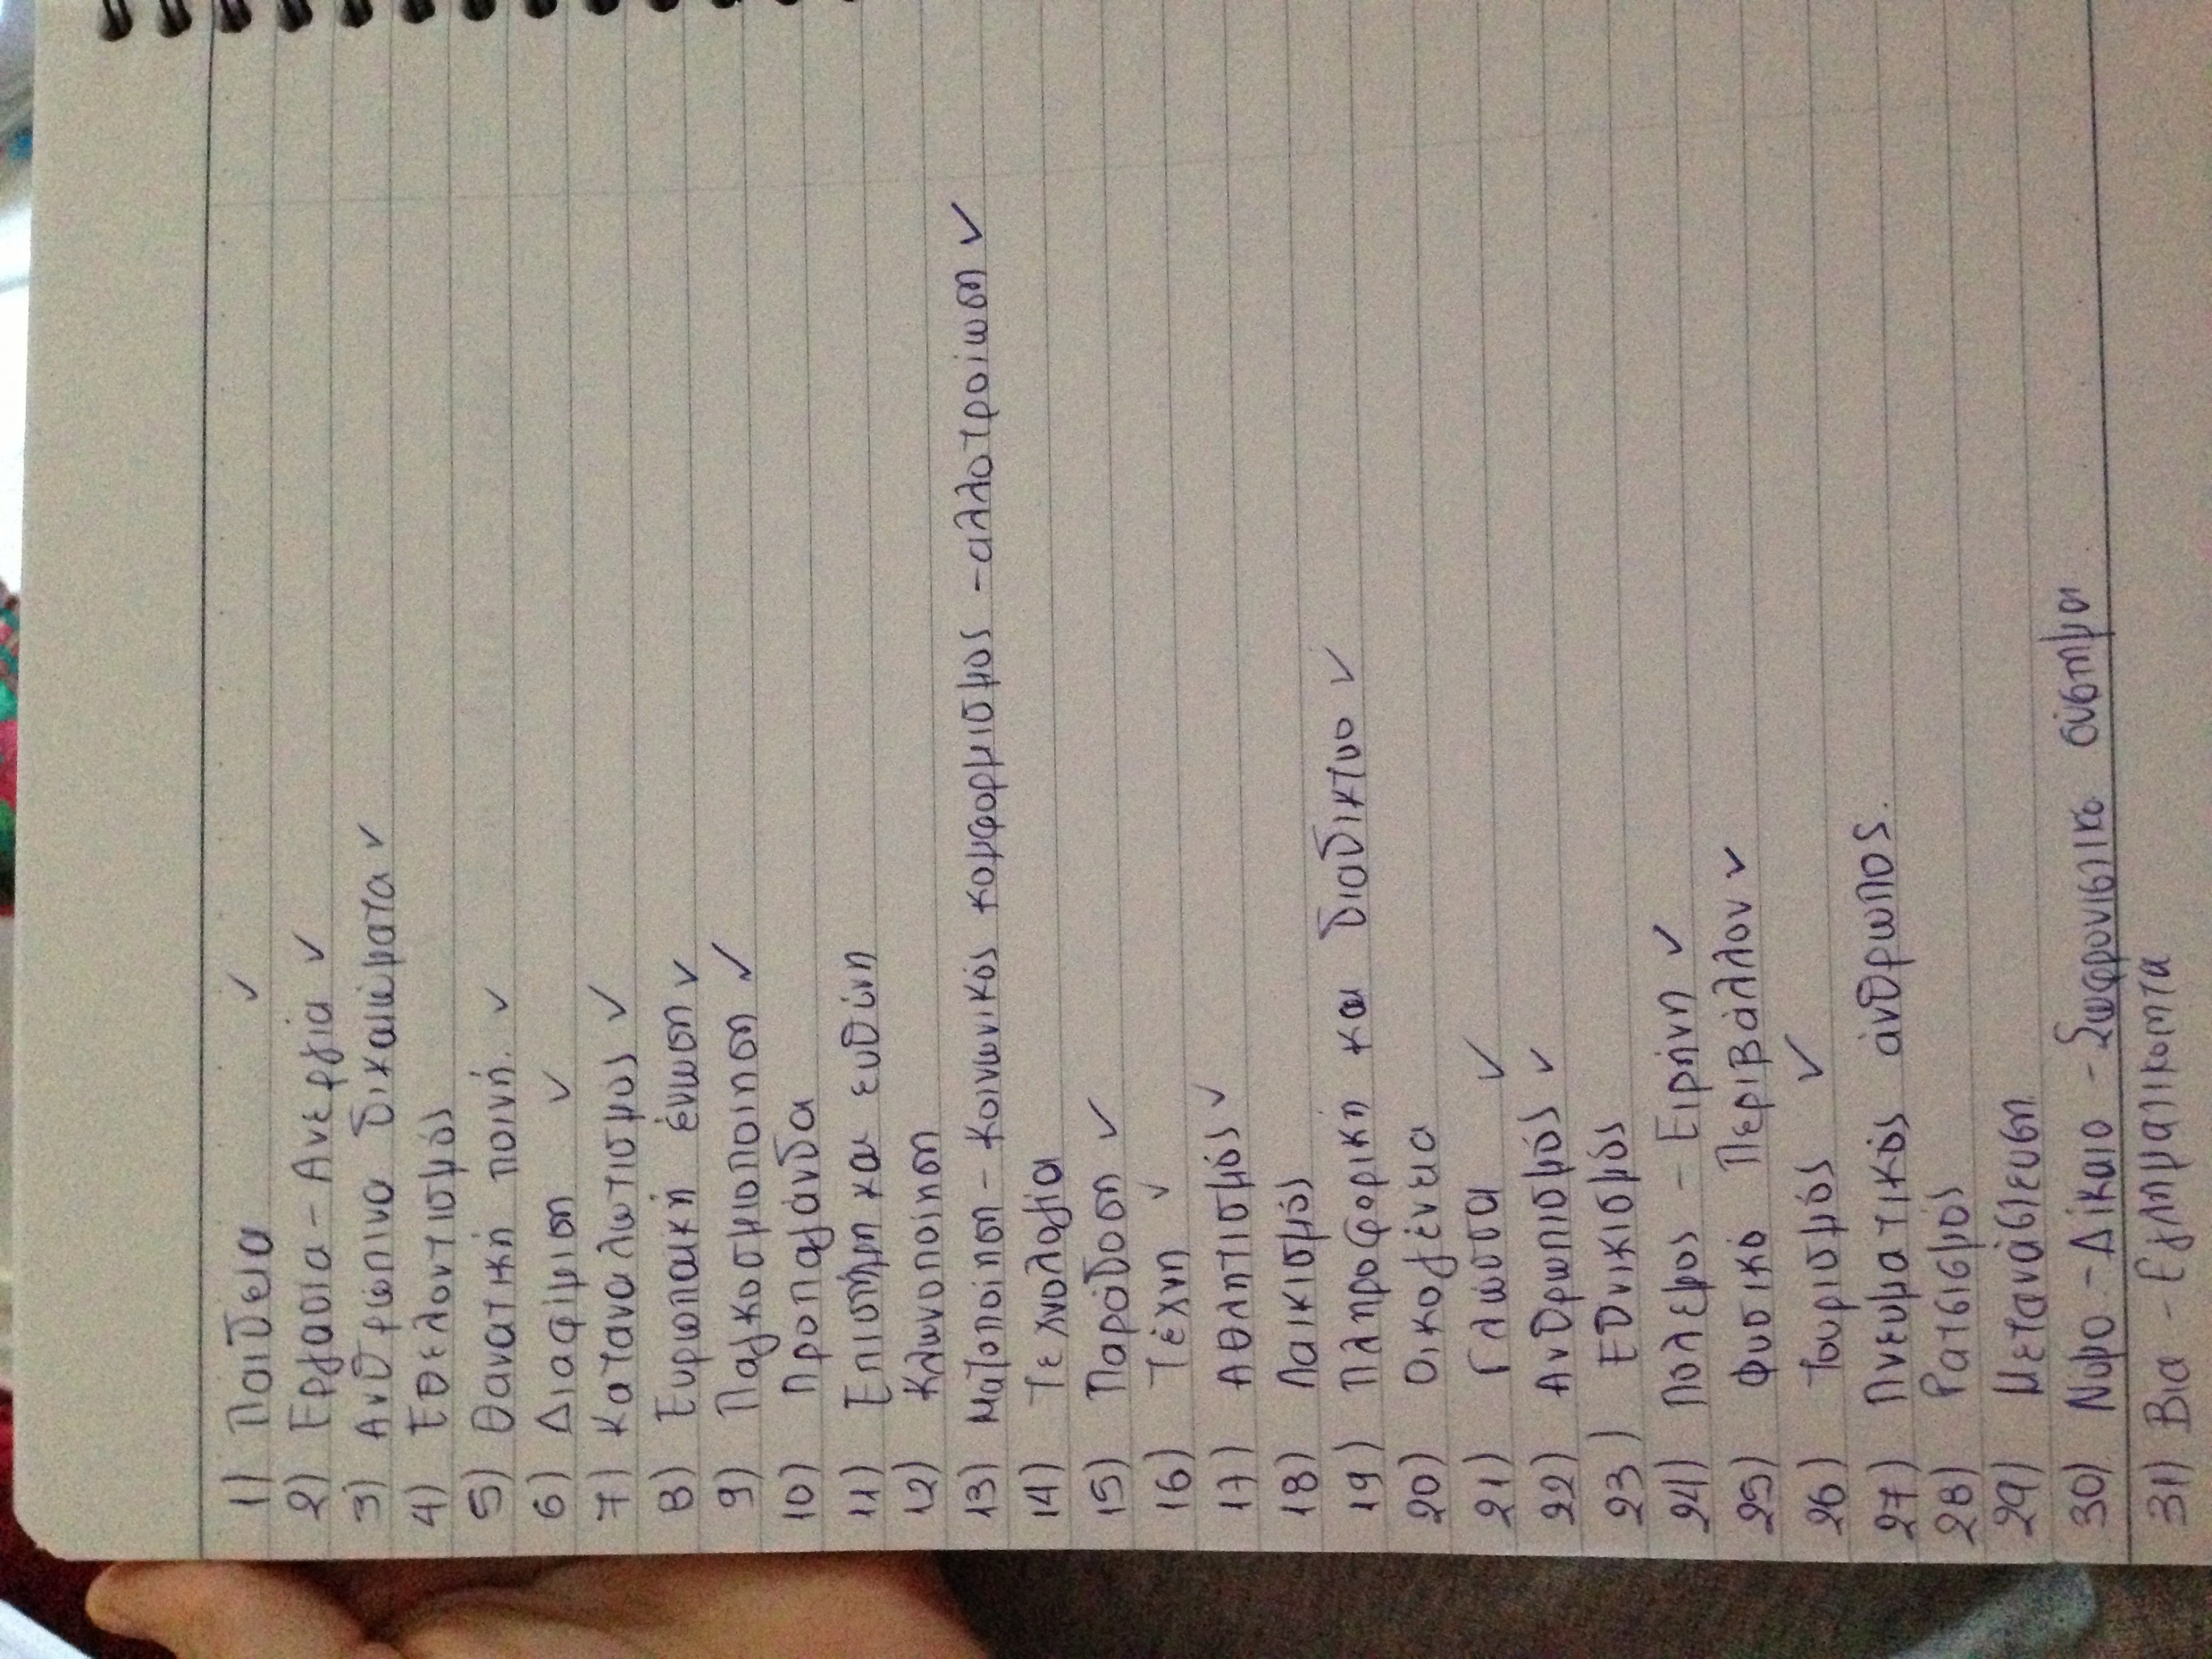 1) Παιδεια ✓
2) Εργασια - Ανεργία ✓
3) Ανθρωπινα δικαιώματα ✓
4) Εθελοντισμός
5) Θανατική ποινή. ✓
6) Διαφίμιση ✓
7) Καταναλωτισμος ✓
8) Ευρωπαική ένωση ✓
9) Παγκοσμιοποιηση ✓
10) Προπαγάνδα
11) Επιστήμη και ευθύνη
12) Κλωνοποίηση
13) Μαζοποίηση - Κοινωνικός κομφορμισμος - αλλοτρίωση ✓
14) Τεχνολογία
15) Παράδοση ✓
16) Τέχνη ✓
17) Αθλητισμός ✓
18) Λαικισμός
19) Πληροφορική και διαδικτυο ✓
20) Οικογένεια
21) Γλώσσα ✓
22) Ανθρωπισμός ✓
23) Εθνικισμός
24) Πολεμος - Ειρήνη ✓
25) Φυσικό Περιβάλλον ✓
26) Τουρισμός ✓
27) Πνευματικός άνθρωπος.
28) Ρατσισμός
29) Μετανάστευση
30) Νομο - Δίκαιο - Σωφρονιστικο σύστημα
31) Βια - Εγκληματικοτητα